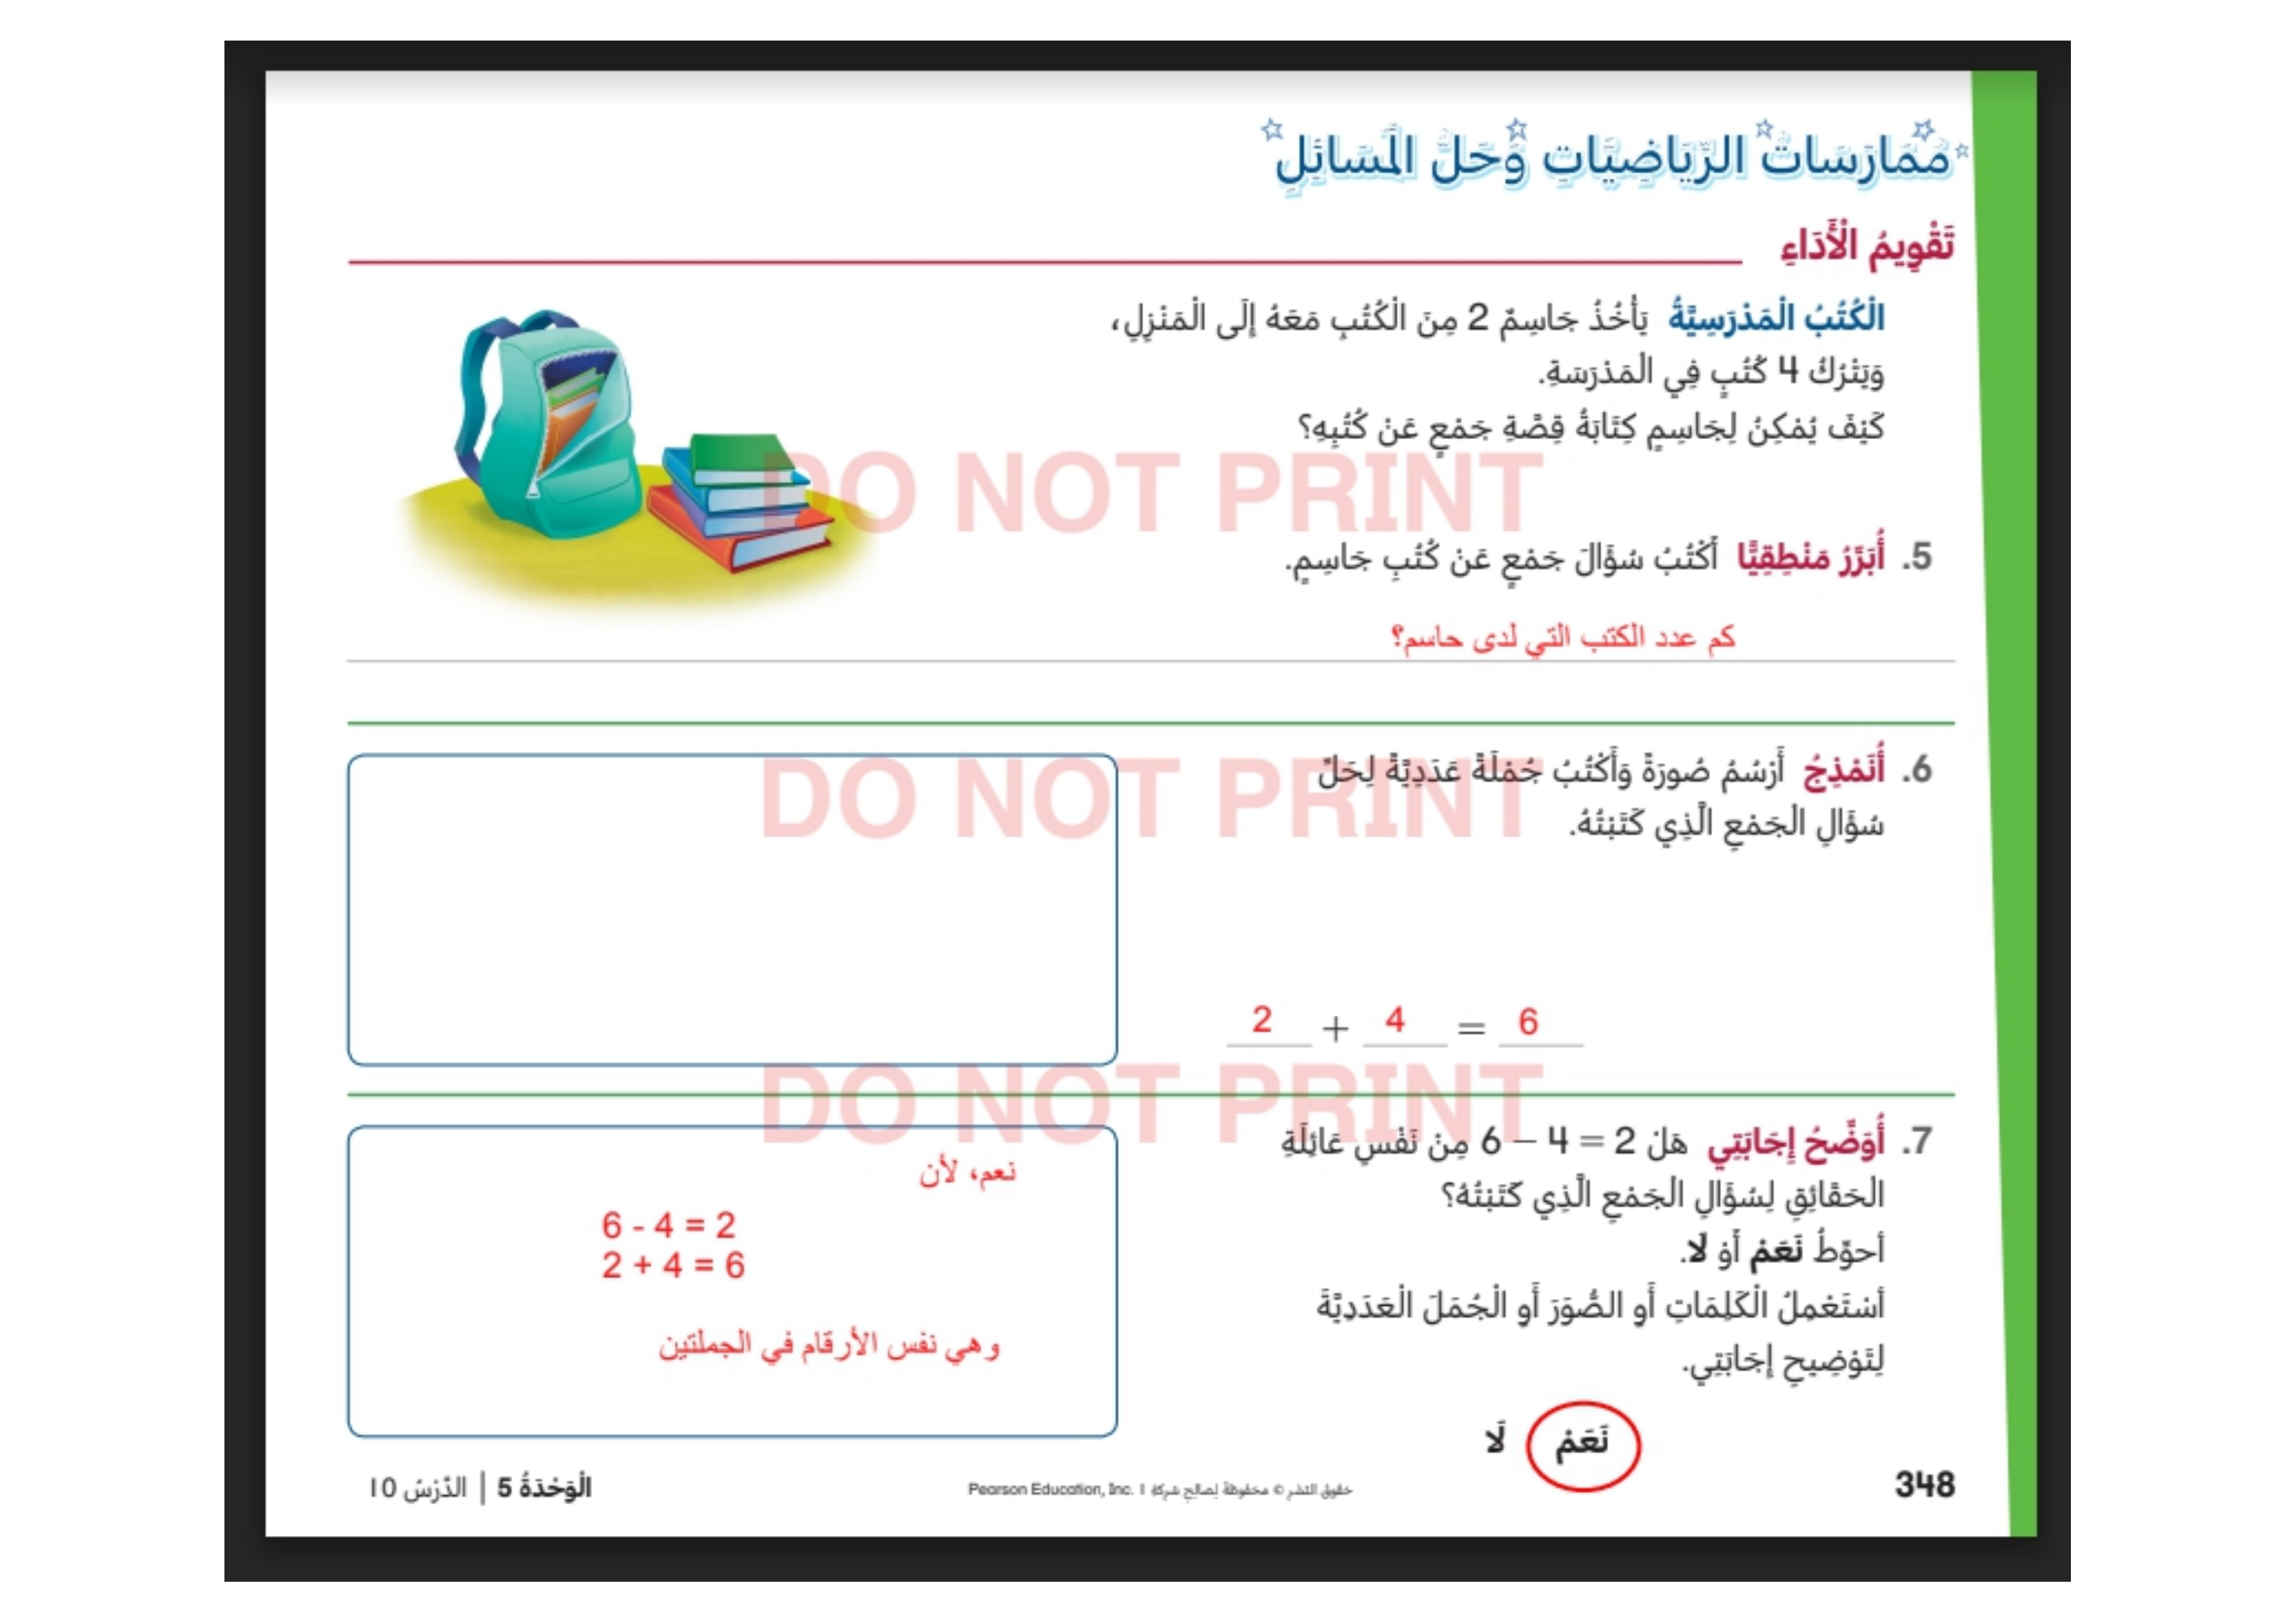 مُمَارَسَاتُ الرِّيَاضِيَّاتِ وَحَلُّ الْمَسَائِلِ
تَقْوِيمُ الْأَدَاءِ
الْكُتُبُ الْمَدْرَسِيَّةُ يَأْخُذُ جَاسِمٌ 2 مِنَ الْكُتُبِ مَعَهُ إِلَى الْمَنْزِلِ،
وَيَتْرُكُ 4 كُتُبٍ فِي الْمَدْرَسَةِ.
كَيْفَ يُمْكِنُ لِجَاسِمٍ كِتَابَةُ قِصَّةِ جَمْعٍ عَنْ كُتُبِهِ؟
DO NOT PRINT
5. أُبَرِّرُ مَنْطِقِيًّا أَكْتُبُ سُؤَالَ جَمْعٍ عَنْ كُتُبِ جَاسِمٍ.
كم عدد الكتب التي لدى حاسم؟
6. أُنَمْذِجُ أَرْسُمُ صُورَةً وَأَكْتُبُ جُمْلَةً عَدَدِيَّةً لِحَلِّ
DO NOT PRINT
سُؤَالِ الْجَمْعِ الَّذِي كَتَبْتُهُ.
2 + 4 = 6
DO NOT PRINT
7. أُوَضِّحُ إِجَابَتِي هَلْ 6 – 4 = 2 مِنْ نَفْسِ عَائِلَةِ
الْحَقَائِقِ لِسُؤَالِ الْجَمْعِ الَّذِي كَتَبْتُهُ؟
أحوِّطُ نَعَمْ أَوْ لَا.
أَسْتَعْمِلُ الْكَلِمَاتِ أَوِ الصُّوَرَ أَوِ الْجُمَلَ الْعَدَدِيَّةَ
لِتَوْضِيحِ إِجَابَتِي.
نَعَمْ لَا
نعم، لأن
6 - 4 = 2
2 + 4 = 6
وهي نفس الأرقام في الجملتين
348
حقوق النشر © محفوظة لصالح شركة Pearson Education, Inc. 1
الْوَحْدَةُ 5 | الدَّرْسُ 10